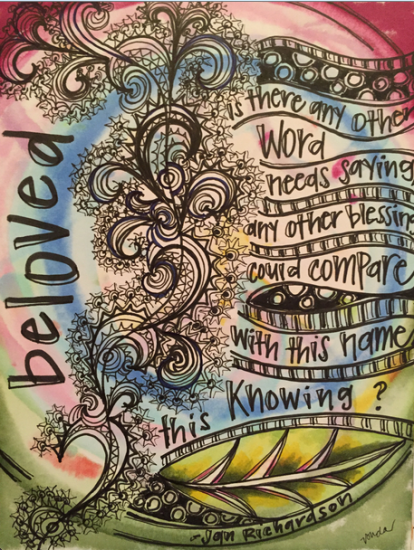 beloved
is there any other
Word
needs saying
any other blessing
could compare
with this name
this Knowing?
- Jan Richardson
Vonda